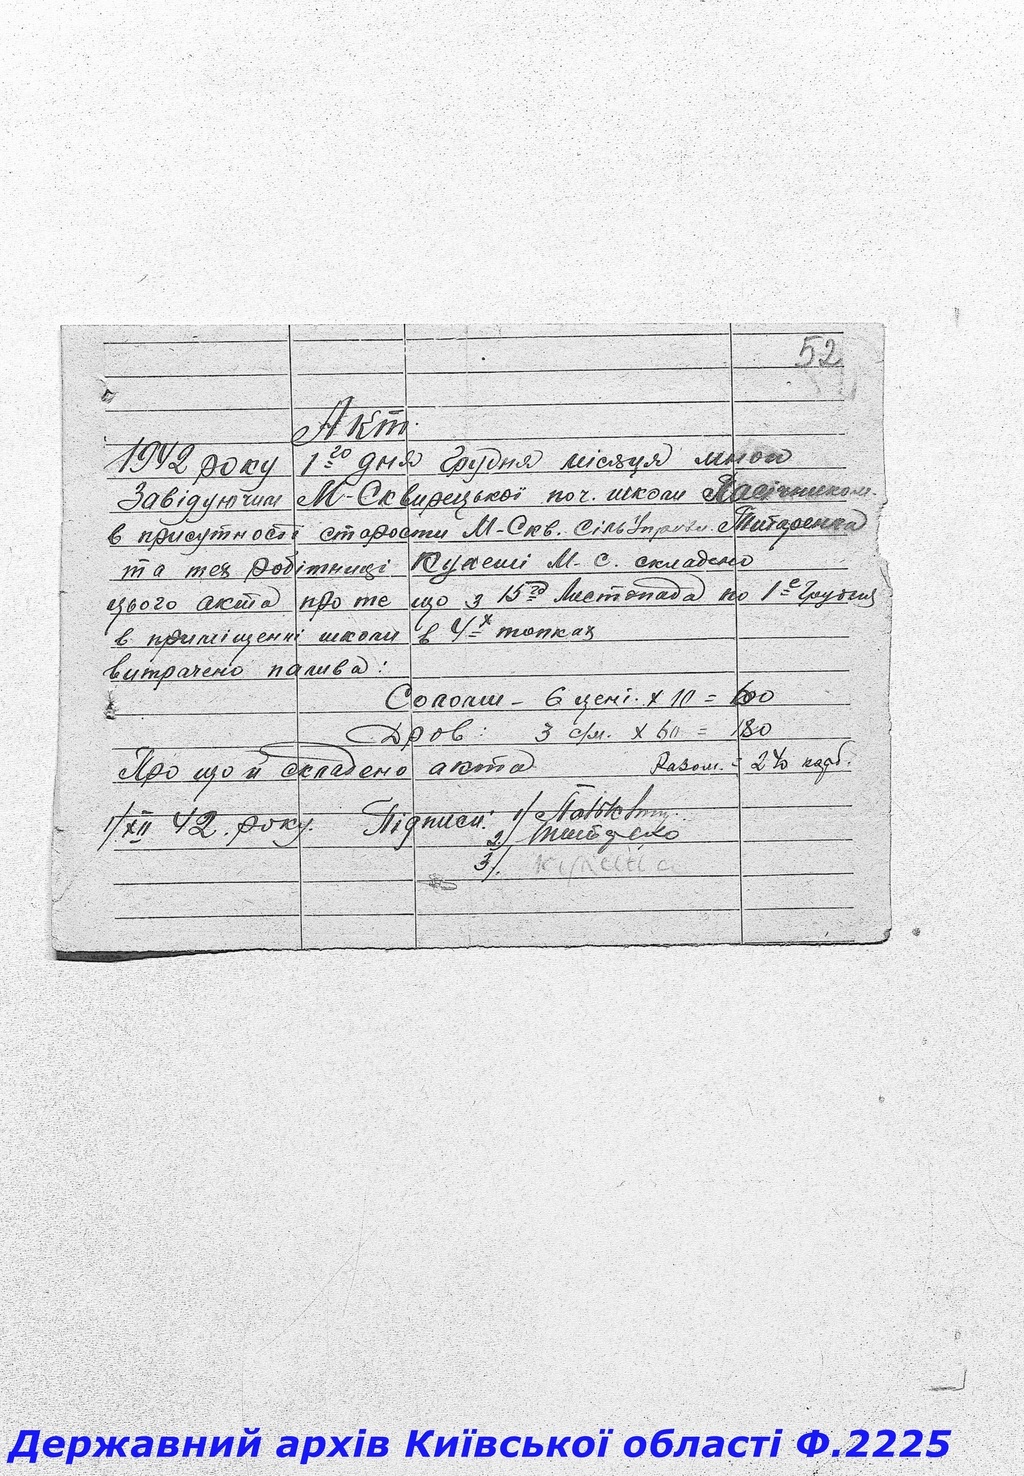 52
Акт.
1942 року 1го дня Грудня місяця мною
Завідуючим М-Сквирецької поч. школи Пасічником.
в присутності старости М-Скв. Сільуправи. Титаренка
та тех робітниці М. С. складено
цього акта про те що з 15го Листопада по 1е Грудня
в приміщенні школи в 4х топках
витрачено палива:
Соломи - 6 цент. х 10 =
Дров: 3 с/м. х 60 = 180
Про що й складено акта Разом. = 240 карб.
1/XII 42. року. Підписи: 1/
2/
3/
Державний архів Київської області Ф.2225